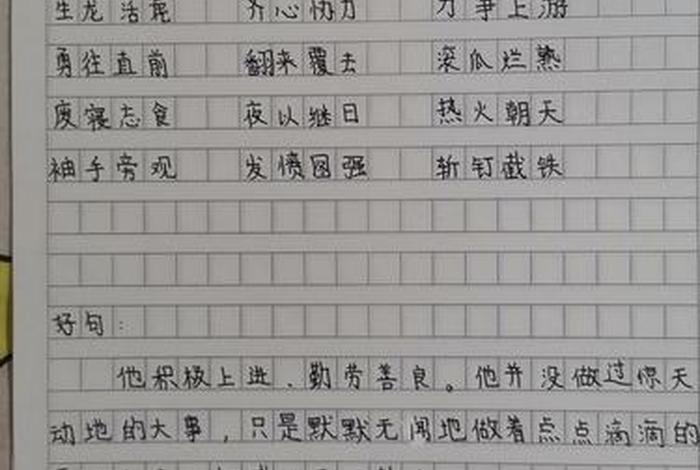 生龙活虎 齐心协力 力争上游
勇往直前 翻来覆去 滚瓜烂熟
废寝忘食 夜以继日 热火朝天
袖手旁观 发愤图强 斩钉截铁
好句：
他积极上进、勤劳善良。他并没做过惊天
动地的大事，只是默默无闻地做着点点滴滴的